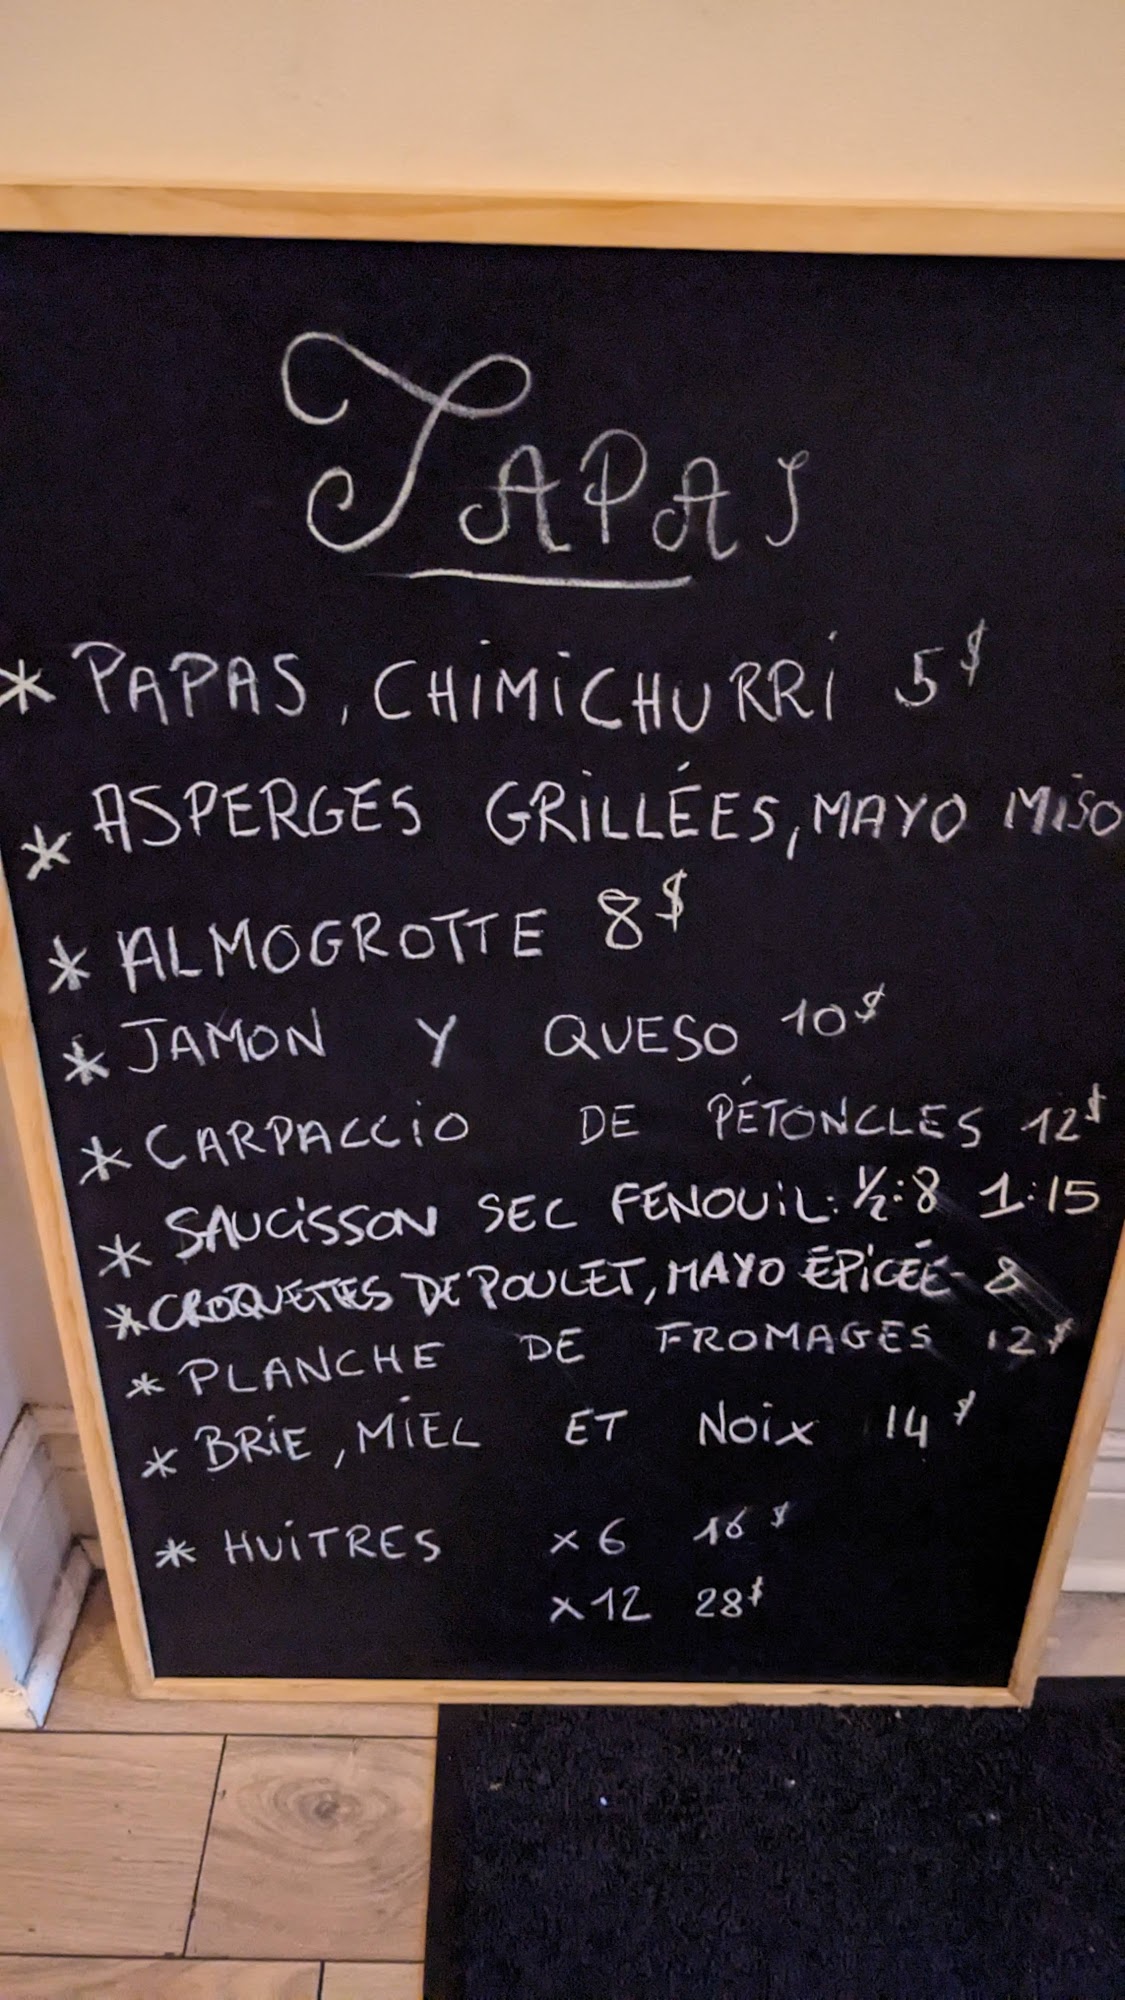 TAPAS
* PAPAS, CHIMICHURRI 5$
* ASPERGES GRILLÉES, MAYO MISO
* ALMOGROTTE 8$
* JAMON Y QUESO 10$
* CARPACCIO DE PÉTONCLES 12$
* SAUCISSON SEC FENOUIL: ½:8 1:15
* CROQUETTES DE POULET, MAYO ÉPICÉE - 8
* PLANCHE DE FROMAGES 12$
* BRIE, MIEL ET NOIX 14$
* HUITRES x6 16$
x12 28$